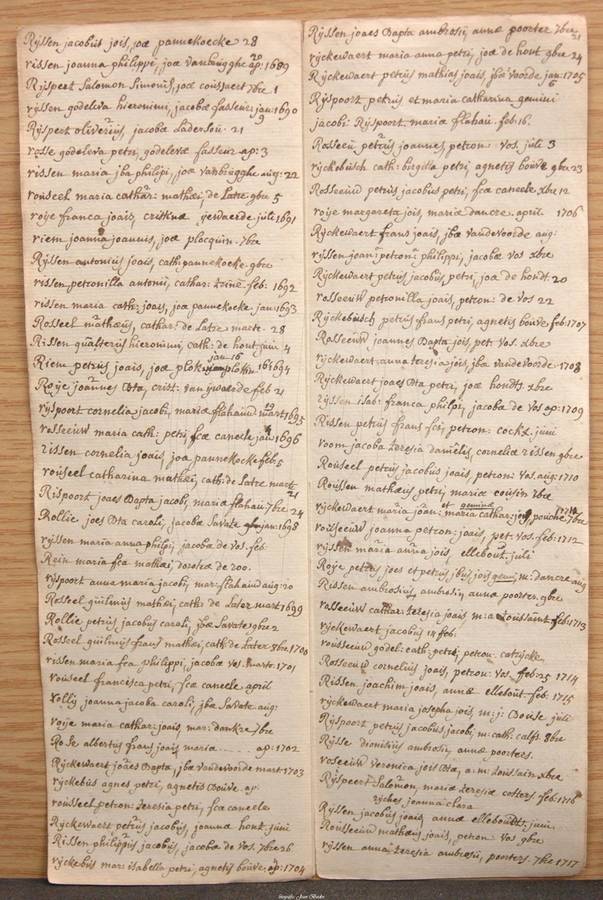 Ryssen jacobus jois, joæ pannekoecke 28
rissen joanna philippi, joæ vanbrugghe ap: 1689
Ryspert Salomon Simonis, joæ coussaert 7bre 1
ryssen godeleva hieronimi, jacobæ fasseur jan: 1690
Ryspert oliverius, jacobæ Ladersou: 21
rosse godeleva petri, godelevæ fasseur ap: 3
rissen maria jba philipi, joæ vanbrugghe aug: 22
rouseel maria cathar: mathæi, de Latre gbre 5
roije franca joais, cristinæ ijerwaerde juli 1691
riem joanna joannis, joæ plocquin. 7bre
Ryssen antonius joais, cath: pannekoecke. gbre
rissen petronilla antonii, cathar: feb: 1692
rissen maria cath: joais, joæ pannekoecke jan: 1693
Rosseel mathæus, cathar: de Latre marti. 28
Rissen gualterus hieronimi, cath: de hont juni 4
Riem petrus joais, joæ jan 16 1694
Roije joannes Bta, crist: van ijwaerde feb 21
ryspoort cornelia jacobi, mariæ flahaud mart 1695
rasseeuw maria cath: petri, fcæ caneele jan 1696
rissen cornelia joais, joæ pannekocke feb: 5
rouseel catharina mathæi, cath: de Latre marti 21
Rispoort joaes Bapta jacobi, mariæ flahau 7bre 24
Rollie joes Bta caroli, jacobæ Savate jan: 1698
ryssen maria anna philpi, jacobæ de vos. feb:
Rein maria fca mathæi, doratæ de zoo.
ryspoort anna maria jacobi, mar: flahaud aug: 20
Rosseel guilmus mathæi, cath: de Later mart 1699
Rollie petrus jacobus caroli, jbæ Savate gbre 2
Rosseel guilmus frans mathæi, cath: de Later 8bre 1700
rissen maria fca philippi, jacobæ vos. Mart: 1701
rouseel francisca petri, fcæ caneele april
rollij joanna jacoba caroli, jbæ Savate aug:
roije maria cathar: joais, mar: dankre 7br
Rose albertus frans joais maria ...... ap: 1702
Ryckewaert joaes Bapta, jbæ vandevoorde mart 1703
ryckebus agnes petri, agnetis Bouve. ap:
rousseel petron: teresia petri, fcæ caneele
Ryckewaert petrus jacobus, joanna hont juni
Rissen philippus jacobus, jacobæ de vos. 7bre 26
ryckebus mar: isabella petri, agnetis bouve. ap: 1704
Ryssen joaes Bapta ambrosii, annæ poorter 7bre 21
ryckewaert maria anna petri, joæ de hont gbre 24
Ryckewaert petrus mathias joais, jbæ voorde jan: 1705
Ryspoort petrus et maria catharina gemini
jacobi: Ryspoort. mariæ flahau: feb: 16.
Rosseeu petrus joannes, petron: vos, juli 3
ryckebusch cath: birgitta petri, agnetis bouve gbre 23
Rosseeuw petrus jacobus petri, fcæ caneele xbre 12
roije margareta jois, mariæ dancre. april. 1706
Ryckewaert frans joais, jbæ vandevoorde aug:
ryssen joanni petroni philippi, jacobæ vos xbre
Ryckewaert petrus jacobus, petri, joæ de hondt. 20
rosseeuw petronilla joais, petron: de vos 22
Ryckebusch petrus frans petri, agnetis bouve feb: 1707
Rasseeuw joannes Bapta jois, pet: vos. xbre
ryckewaert anna teresia jois, jba vandevoorde 1708
Ryckewaert joaes Bta petri, joæ hondts xbre
ryssen isab: franca philpi, jacoba de vos ap: 1709
Rissen petrus frans fci, petron: cockx. juni
room jacoba teresia danielis, corneliæ rissen gbre
Rouseel petrus jacobus joais, petron: vos. aug: 1710
Roussen mathæus petri, mariæ cousin 7bre
ryckewaert maria joan: et maria cathar: gemini jois, pouche 7bre 1711
rousseeuw joanna petron: joais, pet: vos. feb: 1712
ryssen maria anna jois, elleboudt. juli
Roije petrus joes et petrus, jbus jois gemini m: dancre aug
Rissen ambrosius, ambrosii, annæ poorter. gbre
rasseeuw cathar: teresia joais, m: a: toussaint feb: 1713
ryckewaert jacobus 18 feb:
rousseeuw godel: cath: petri, petron: catrijcke
Rosseeuw cornelius joais, petron: vos feb: 25 1714
Rissen joachim joais, annæ ellebout feb: 1715
ryckewaert maria josepha jois, m: j: Bouse juli
Ryspoort petrus jacobus, jacobi, m: cath: calft 8bre
Rysse dionisius ambrosii, annæ poorters.
roseeuw veronica jois Bta, a: m: toussain xbre
Ryspeert Salomon, mariæ teresiæ cotters feb: 1716
ryckes, joanna clara
Ryssen jacobus joais, annæ elleboudts. juni
Rousseeuw mathæus joais, petron: vos gbre
ryssen anna teresia ambrosii, poorters. 7bre 1717